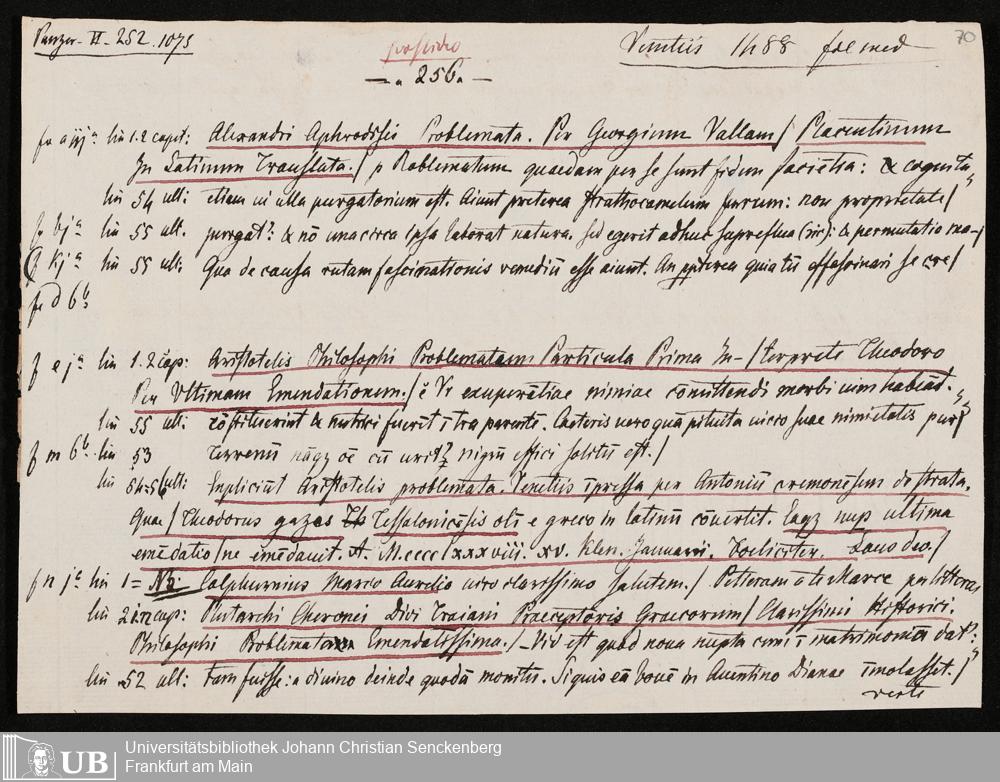 Panzer - VI - 252. 1075
Venetiis 1488 fol med
70
- 256. -
fo aiij a lin 1.2 capit: Alexandri Aphrodisei Problemata. Per Georgium Vallam / Placentinum
In Latinum Translata. / p Roblematum quaedam per se sunt fidem : & cognita
lin 54 ult: etiam ui ulla purgatorium est. Aiunt preterea strathocamelum furum: non proprietate /
f bj a lin 55 ult. purgat: & nō una circa ipsa laborat natura. sed egerit adhuc (sic): & permutatio
f kj a lin 55 ult: Qua de causa rutam fascinationis remediū esse aiunt. An quia tū effascinari se cre /
fo d 6 b
f e j a lin 1.2 cap: Aristotelis Philosophi Problematum Particula Prima In- / terprete Theodoro
Per Vltimam Emendationem. / nimiae cōmittendi morbi uim habēat.
lin 55 ult: & nutrici fuerit ītra parentē. Caeteris uero quā pituita uicio suae nimietatis pur /
f m 6 b. lin 53 Terrenū effici solitū est. /
lin 54-56 ult: Expliciūt Aristotelis problemata. Venetiis īpressa per Antoniū cremonēsem de strata.
Quae / Theodorus gazes Tessalonicēsis olī e greco in latinū cōuertit. ultima
emēdatio / ne emēdauit. A. M.cccc lxxxviii. xv. Klen. Januarii. Foeliciter. Laus deo. /
f n j a lin 1 = NB.- Calphurnius Marco Aurelio uiro clarissimo salutem. / a te Marce per littera
lin 2 cap: Plutarchi Cheronei Diui Traiani Praeceptoris Graecorum / Clarissimi Historici.
Philosophi Problemata Emendatissima. / est quod noua nupta matrimonio
lin 52 ult: tam fuisse: a diuino deinde quodā monitus. Si quis eā bouē in Auentino Dianae īmolasset. /
verte
Universitätsbibliothek Johann Christian Senckenberg
Frankfurt am Main
UB